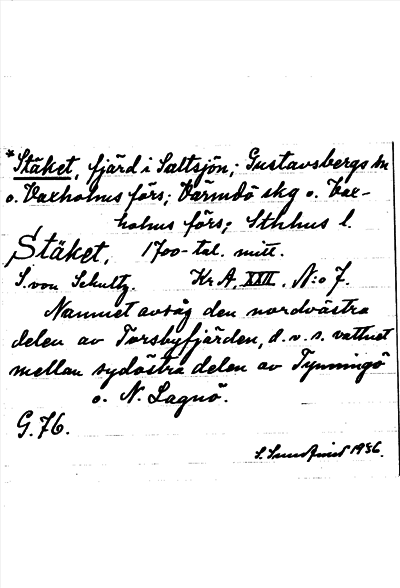 *Stäket, fjärd i Saltsjön; Gustavsbergs sn
o. Vaxholms förs; Värmdö skg o. Vax-
holms förs; Sthlms l.
Stäket, 1700-tal. mitt.
S. von Schultz. Kr A, XXII, N:o 7.
Namnet avsåg den nordvästra
delen av Torsbyfjärden, d. v. s. vattnet
mellan sydöstra delen av Tynningö
o. N. Lagnö.
G. 76.
1936.